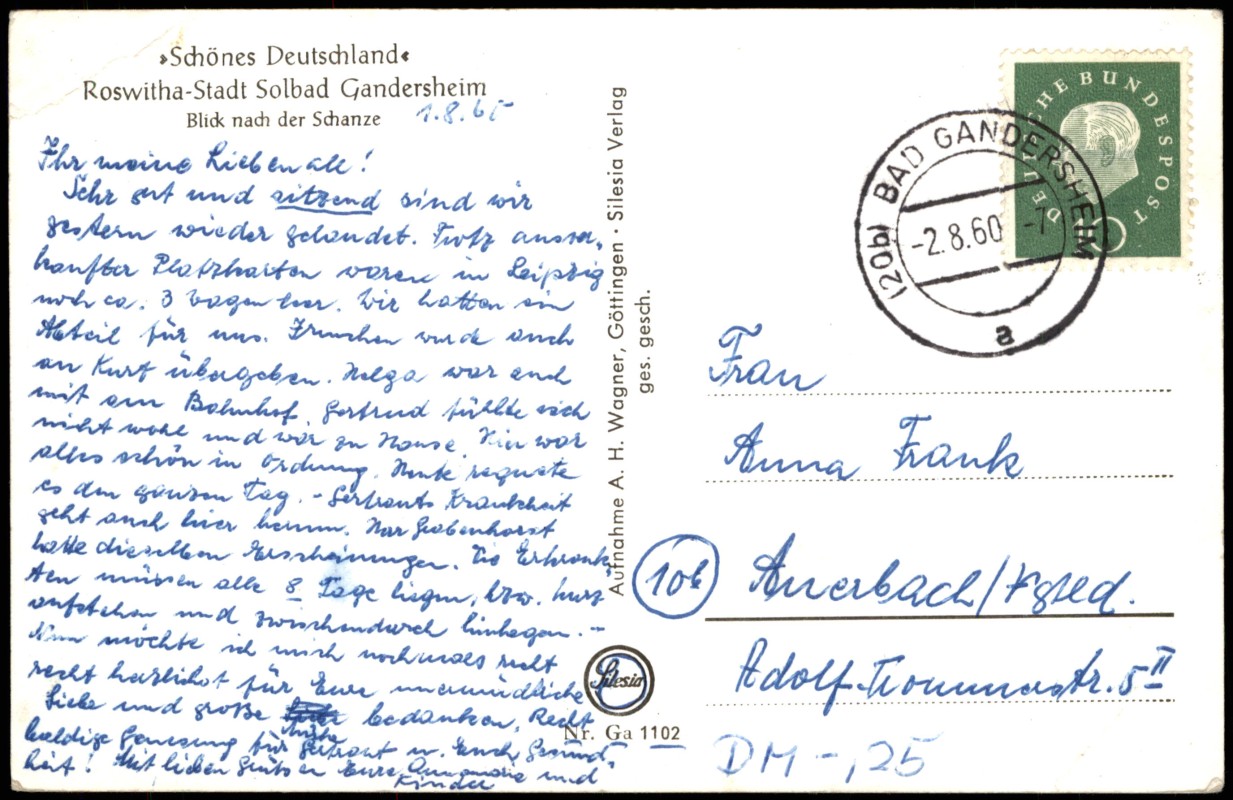 »Schönes Deutschland«
Roswitha-Stadt Solbad Gandersheim
Blick nach der Schanze
1.8.60
Ihr meine Lieben all!
Sehr gut und sitzend sind wir
gestern wieder gelandet. Trotz ausver-
kaufter Platzkarten waren in Leipzig
noch ca. 3 Wagen leer. Wir hatten ein
Abteil für uns. wurde auch
an Kurt übergeben. Helga war auch
mit am Bahnhof, Gertrud fühlte sich
nicht wohl und war zu Hause. Hier war
alles schön in Ordnung. Heute regnete
es den ganzen Tag. - Gertrauts Krankheit
geht auch hier herum. 
hatte dieselben Erscheinungen. Die Erkrank-
ten müssen alle 8 Tage liegen, bzw. kurz
aufstehen und zwischendurch hinlegen. -
Nun möchte ich mich nochmals recht
recht herzlichst für Eure unermüdliche
Liebe und große Mühe bedanken, Recht
baldige Genesung für Gertraut u. Euch Gesund-
heit! Mit lieben Grüßen Eure Annemarie und
Kinder
Aufnahme A. H. Wagner, Göttingen · Silesia Verlag
ges. gesch.
Silesia
Nr. Ga 1102
DEUTSCHE BUNDESPOST
10
(20b) BAD GANDERSHEIM
-2.8.60 -7
a
Frau
Anna Frank
10b
Auerbach/Vgtld.
Adolf- 5 II
DM -,25